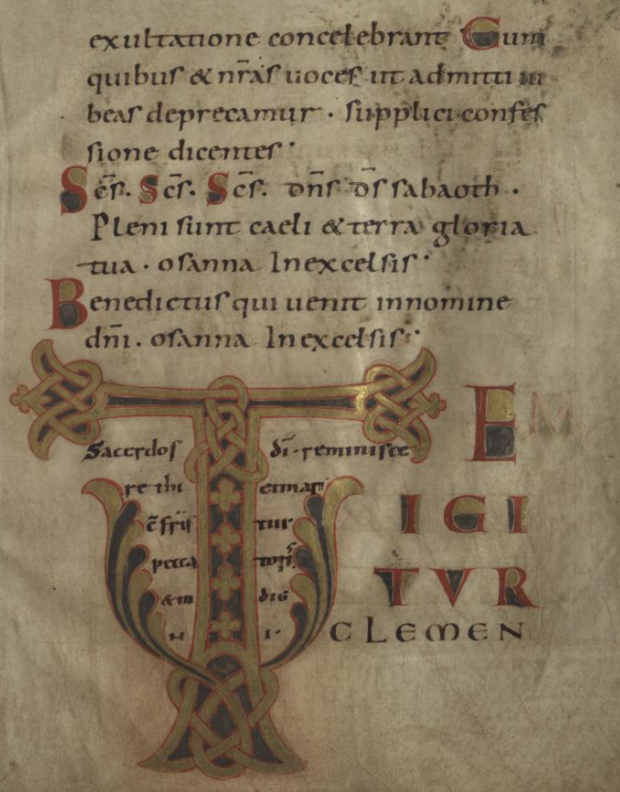 exultatione concelebrant Cum
quibus & nr̄as uoces ut admitti iu
beas deprecamur · supplici confes
sione dicentes ·
Sc̄s. Sc̄s. Sc̄s. dn̄s d̄s sabaoth ·
Pleni sunt caeli & terra gloria
tua · osanna In excelsis ·
Benedictus qui uenit in nomine
dn̄i · osanna In excelsis ·
T E
Sacerdos dī · reminisce
re
IGI
tur
pecca toris
TVR
& in dig
n i ·
CLEMEN